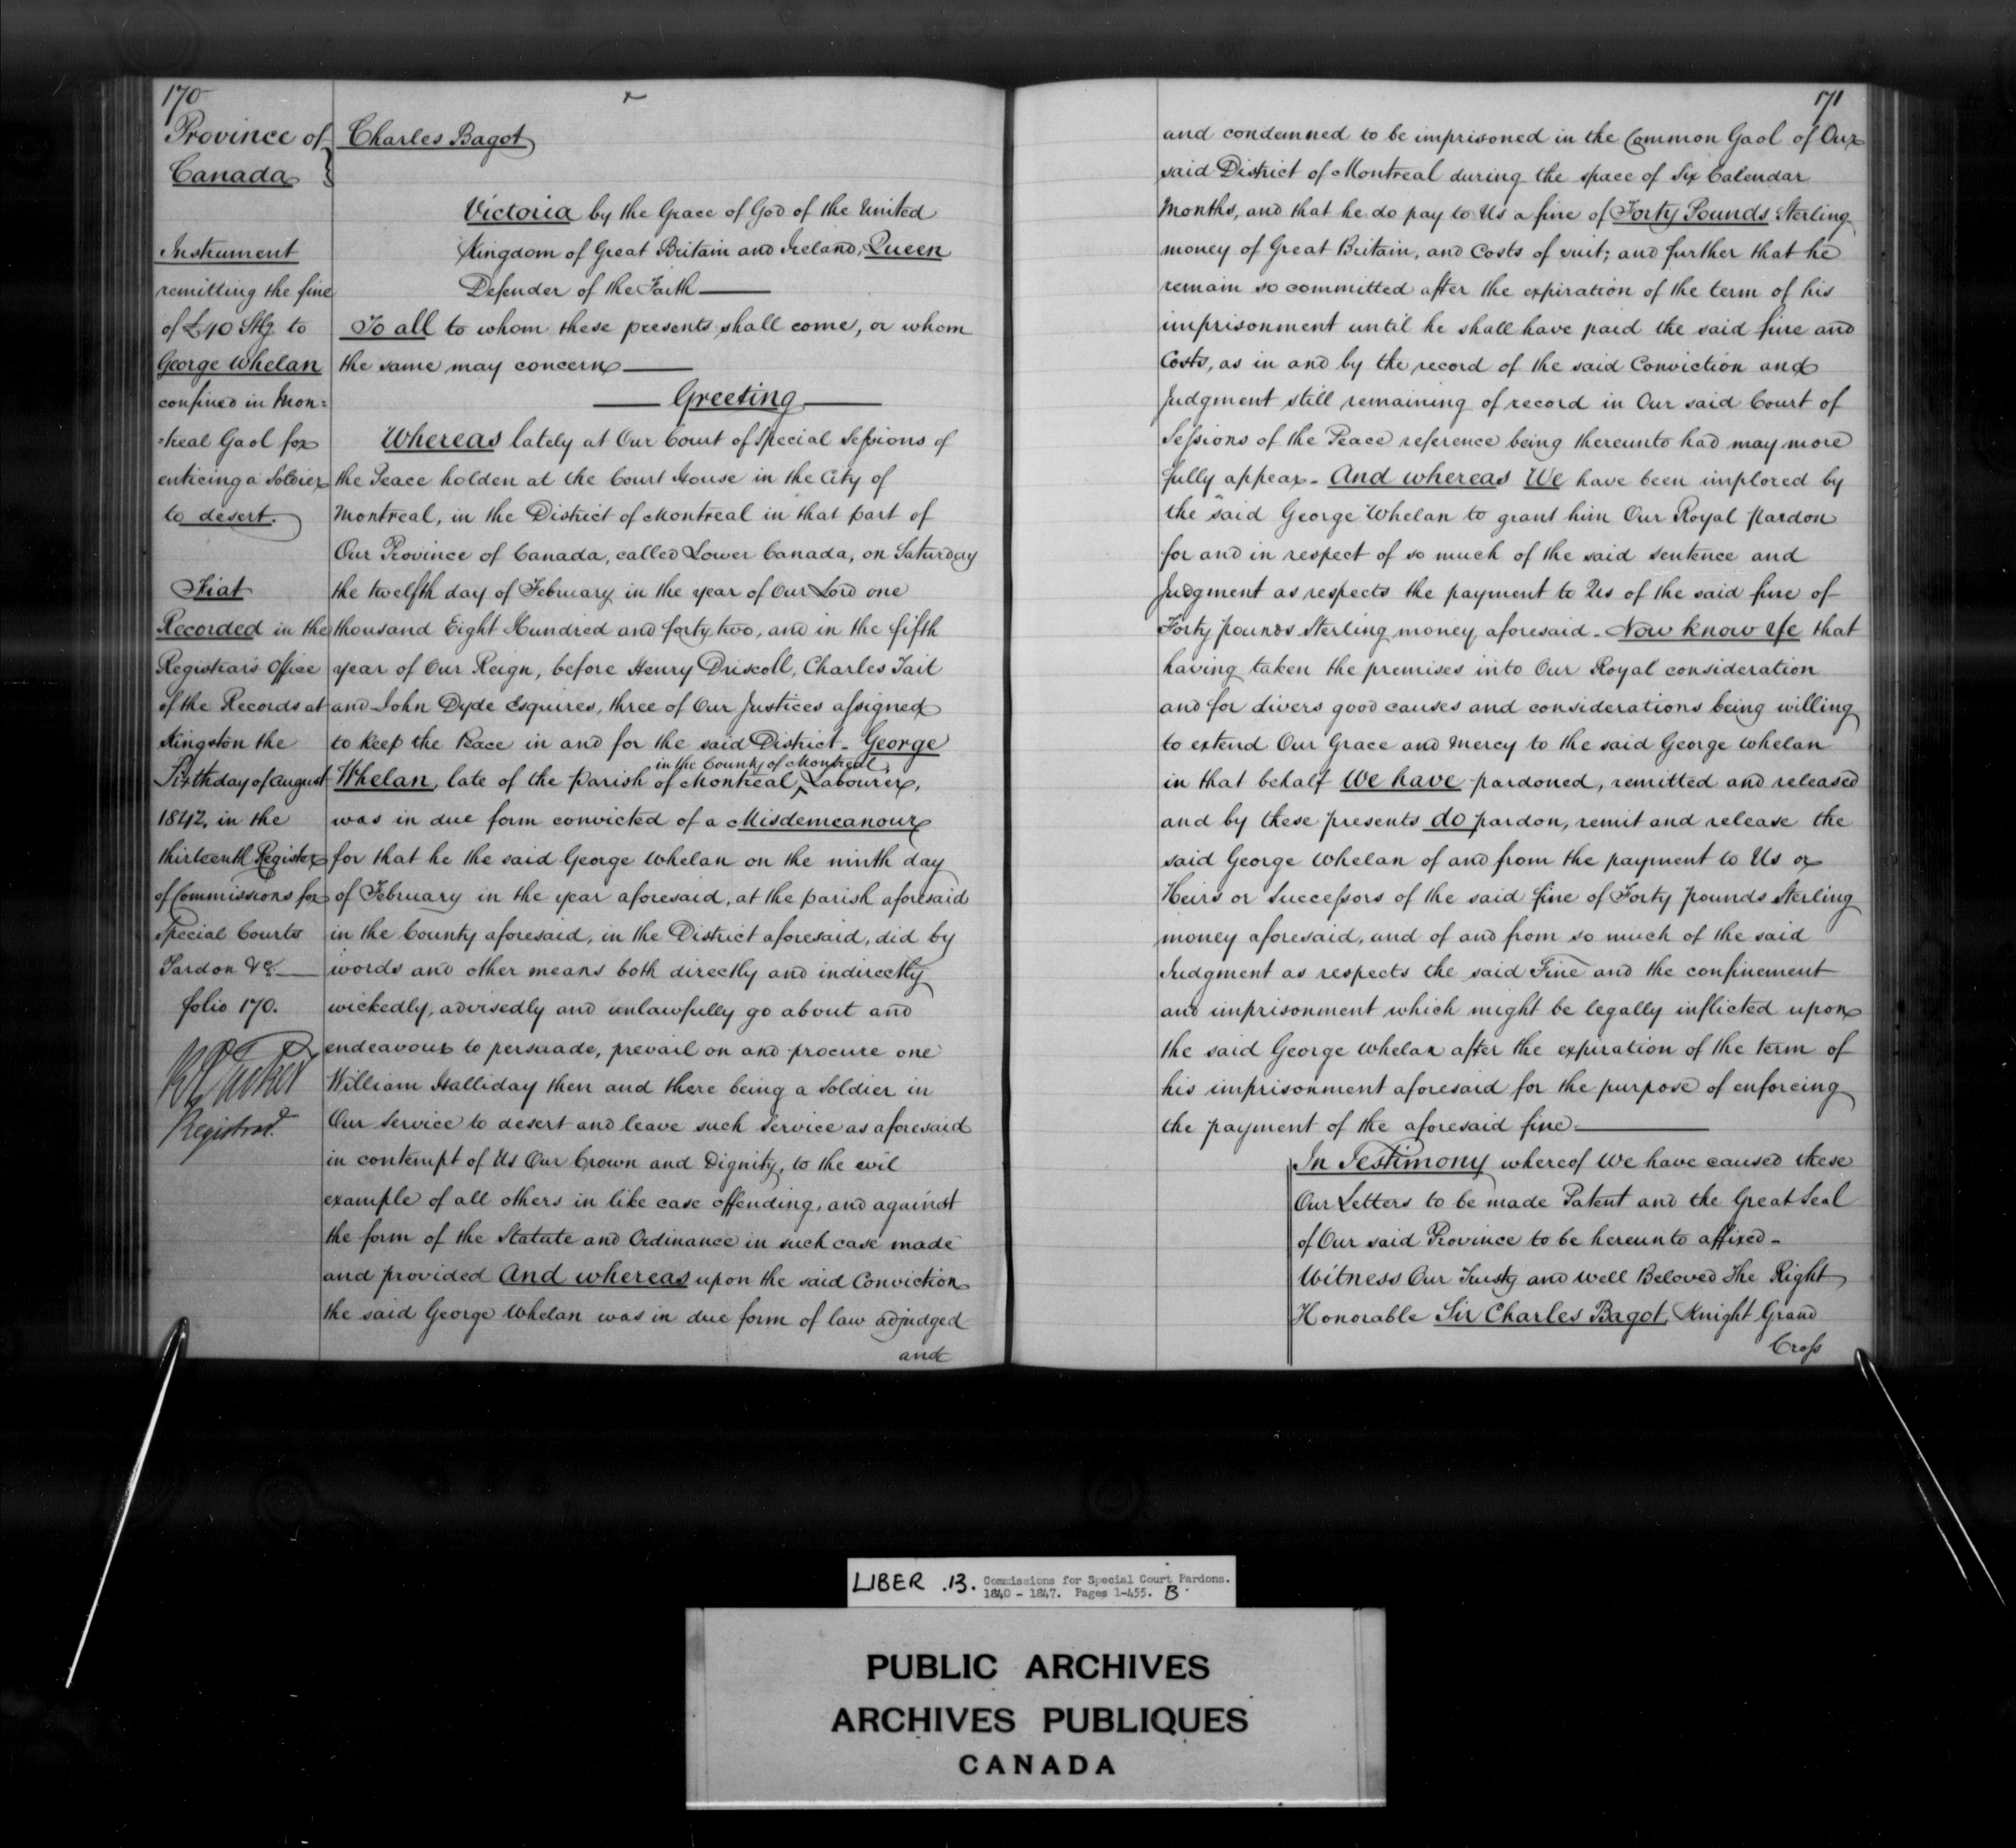 170
Province of
Canada
Instrument
remitting the fine
of £40 Stg. to
George Whelan
confined in Mon=
=treal Gaol for
enticing a Soldier
to desert.
Fiat
Recorded in the
Registrar's Office
of the Records at
Kingston the
Sixth day of August
1842, in the
thirteenth Register
of Commissions for
Special Courts
Pardon &c.
folio 170.
Registrar.
Charles Bagot
Victoria by the Grace of God of the United
Kingdom of Great Britain and Ireland, Queen
Defender of the Faith
To all to whom these presents shall come, or whom
the same may concern
Greeting
Whereas lately at Our Court of Special Sessions of
the Peace holden at the Court House in the City of
Montreal, in the District of Montreal in that part of
Our Province of Canada, called Lower Canada, on Saturday
the twelfth day of February in the year of Our Lord one
thousand Eight Hundred and forty two, and in the fifth
year of Our Reign, before Henry Driscoll, Charles Tait
and John Dyde Esquires, three of Our Justices assigned
to keep the Peace in and for the said District - George
in the County of Montreal
Whelan, late of the parish of Montreal, Labourer,
was in due form convicted of a Misdemeanour
for that he the said George Whelan on the ninth day
of February in the year aforesaid, at the parish aforesaid
in the County aforesaid, in the District aforesaid, did by
words and other means both directly and indirectly
wickedly, advisedly and unlawfully go about and
endeavour to persuade, prevail on and procure one
William Halliday then and there being a Soldier in
Our Service to desert and leave such Service as aforesaid
in contempt of Us Our Crown and Dignity, to the evil
example of all others in like case offending, and against
the form of the Statute and Ordinance in such case made
and provided And whereas upon the said Conviction
the said George Whelan was in due form of law adjudged
and
171
and condemned to be imprisoned in the Common Gaol of Our
said District of Montreal during the space of Six Calendar
Months, and that he do pay to Us a fine of Forty Pounds Sterling
money of Great Britain, and Costs of suit; and further that he
remain so committed after the expiration of the term of his
imprisonment until he shall have paid the said fine and
Costs, as in and by the record of the said Conviction and
Judgment still remaining of record in Our said Court of
Sessions of the Peace reference being thereunto had may more
fully appear - And whereas We have been implored by
the said George Whelan to grant him Our Royal pardon
for and in respect of so much of the said sentence and
Judgment as respects the payment to Us of the said fine of
Forty pounds Sterling money aforesaid - Now know Ye that
having taken the premises into Our Royal consideration
and for divers good causes and considerations being willing
to extend Our Grace and Mercy to the said George Whelan
in that behalf We have pardoned, remitted and released
and by these presents do pardon, remit and release the
said George Whelan of and from the payment to Us or
Heirs or Successors of the said fine of Forty pounds Sterling
money aforesaid, and of and from so much of the said
Judgment as respects the said Fine and the confinement
and imprisonment which might be legally inflicted upon
the said George Whelan after the expiration of the term of
his imprisonment aforesaid for the purpose of enforcing
the payment of the aforesaid fine
In Testimony whereof We have caused these
Our Letters to be made Patent and the Great Seal
of Our said Province to be hereunto affixed -
Witness Our Trusty and Well Beloved The Right
Honorable Sir Charles Bagot, Knight Grand
Cross
LIBER .13. Commissions for Special Court Pardons.
1840 - 1847. Pages 1-455. B
PUBLIC ARCHIVES
ARCHIVES PUBLIQUES
CANADA